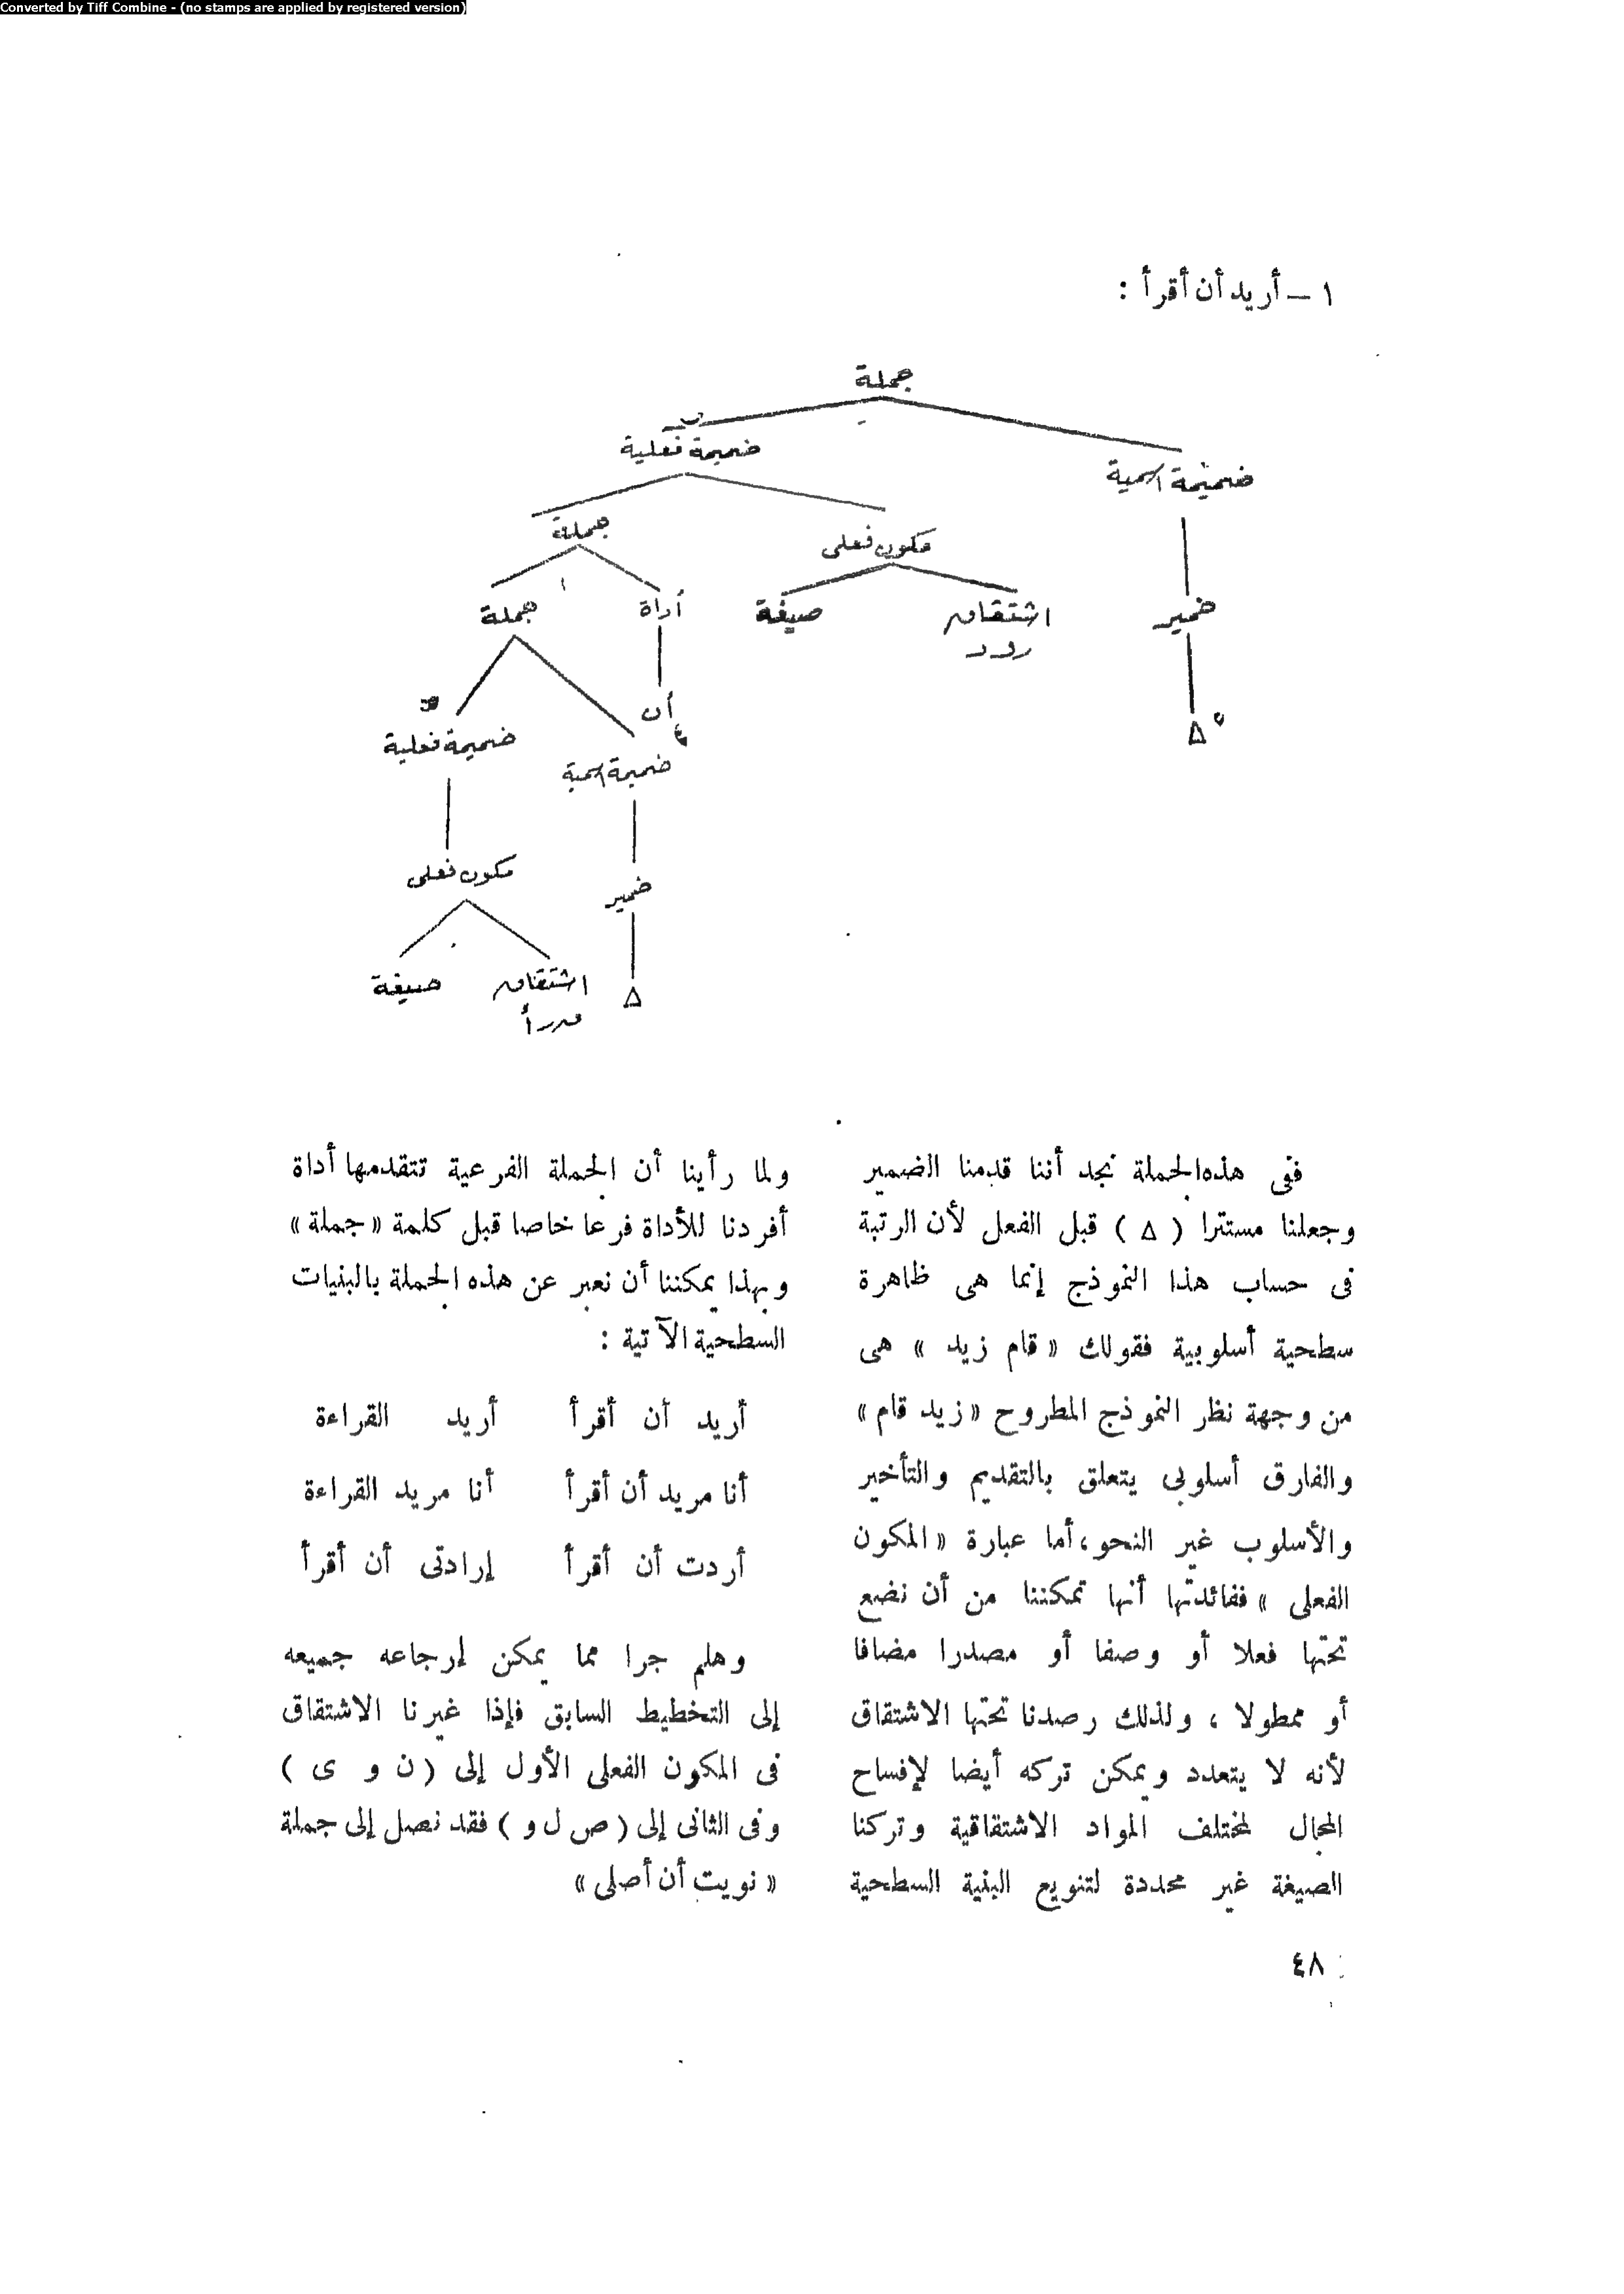 Converted by Tiff Combine - (no stamps are applied by registered version)
١ – أريد أن أقرأ :
جملة
ضميمة اسمية
ضميمة فعلية
مكون فعلى
جملة
ضمير
اشتقاق
صيغة
أداة
جملة
رود
Δ
أن
ضميمة اسمية
ضميمة فعلية
ضمير
مكون فعلى
Δ
اشتقاق
صيغة
ففى هذه الجملة نجد أننا قدمنا الضمير
وجعلنا مستترا ( Δ ) قبل الفعل لأن الرتبة
فى حساب هذا النموذج إنما هى ظاهرة
سطحية أسلوبية فقولك « قام زيد » هى
من وجهة نظر النموذج المطروح « زيد قام »
والفارق أسلوبى يتعلق بالتقديم والتأخير
والأسلوب غير النحو ، أما عبارة « المكون
الفعلى » ففائدتها أنها تمكننا من أن نضع
تحتها فعلا أو وصفا أو مصدرا مضافا
أو ممطولا ، ولذلك رصدنا تحتها الاشتقاق
لأنه لا يتعدد ويمكن تركه أيضا لإفساح
المجال لمختلف المواد الاشتقاقية وتركنا
الصيغة غير محددة لتنويع البنية السطحية
ولما رأينا أن الجملة الفرعية تتقدمها أداة
أفردنا للأداة فرعا خاصا قبل كلمة « جملة »
وبهذا يمكننا أن نعبر عن هذه الجملة بالبنيات
السطحية الآتية :
أريد أن أقرأ أريد القراءة
أنا مريد أن أقرأ أنا مريد القراءة
أردت أن أقرأ إرادتى أن أقرأ
وهلم جرا مما يمكن إرجاعه جميعه
إلى التخطيط السابق فإذا غيرنا الاشتقاق
فى المكون الفعلى الأول إلى ( ن و ى )
وفى الثانى إلى ( ص ل و ) فقد نصل إلى جملة
« نويت أن أصلى »
٤٨